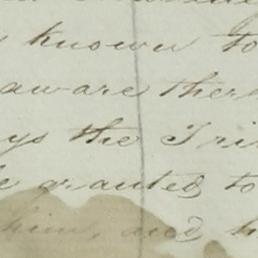 known to
aware there
ys the Tri
granted to
him, and h